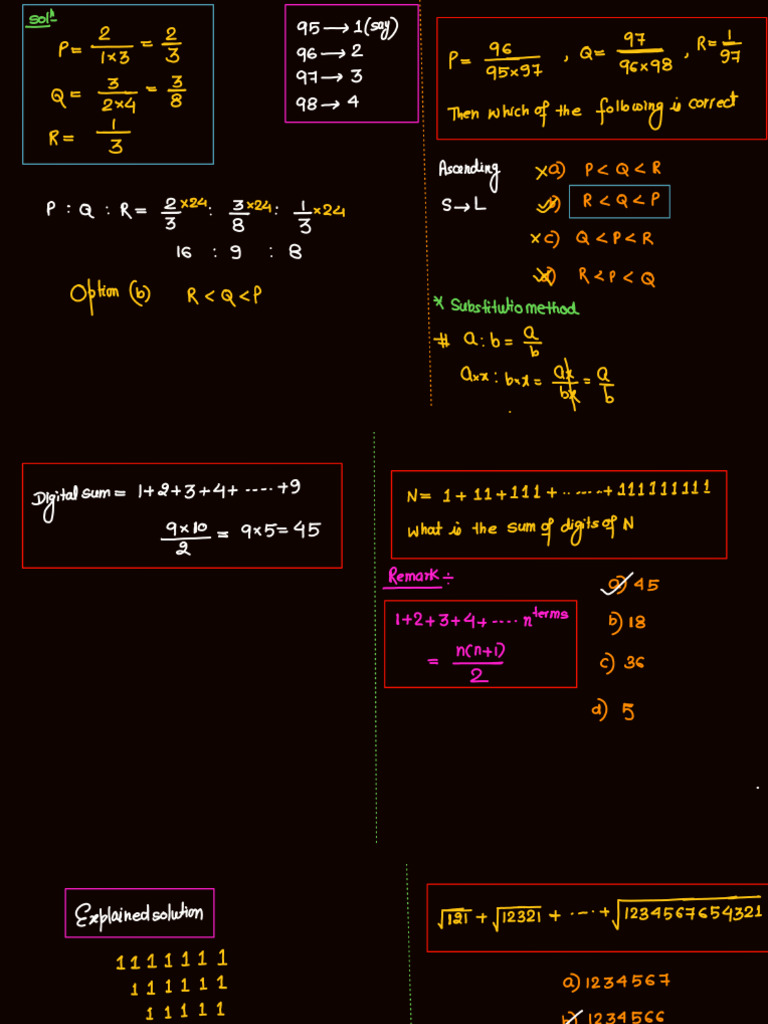 Solⁿ
P = 2/(1×3) = 2/3
Q = 3/(2×4) = 3/8
R = 1/3
95 → 1 (say)
96 → 2
97 → 3
98 → 4
P : Q : R = 2/3 ×24 : 3/8 ×24 : 1/3 ×24
16 : 9 : 8
Option (b) R < Q < P
P = 96/(95×97) , Q = 97/(96×98) , R = 1/97
Then which of the following is correct
Ascending
S → L
×a) P < Q < R
✓b) R < Q < P
×c) Q < P < R
×d) R < P < Q
* Substitutio method
# a : b = a/b
a×x : b×x = ax/bx = a/b
Digital sum = 1+2+3+4+ ..... +9
(9×10)/2 = 9×5 = 45
N = 1 + 11 + 111 + ....... + 111111111
What is the sum of digits of N
Remark :-
1+2+3+4+ ..... n terms
= n(n+1)/2
✓a) 45
b) 18
c) 36
d) 5
Explained solution
1111111
111111
11111
√121 + √12321 + ..... + √1234567654321
a) 1234567
✓b) 1234566